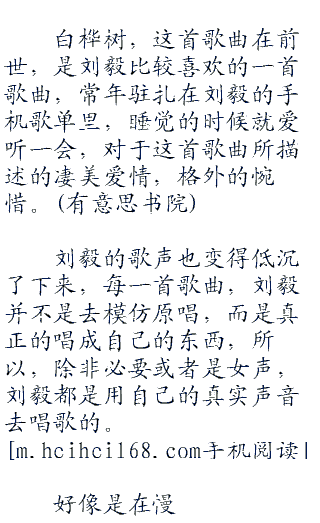 白桦树，这首歌曲在前
世，是刘毅比较喜欢的一首
歌曲，常年驻扎在刘毅的手
机歌单里，睡觉的时候就爱
听一会，对于这首歌曲所描
述的凄美爱情，格外的惋
惜。(有意思书院)
刘毅的歌声也变得低沉
了下来，每一首歌曲，刘毅
并不是去模仿原唱，而是真
正的唱成自己的东西，所
以，除非必要或者是女声，
刘毅都是用自己的真实声音
去唱歌的。
[m.hcihci168.com手机阅读|
好像是在漫